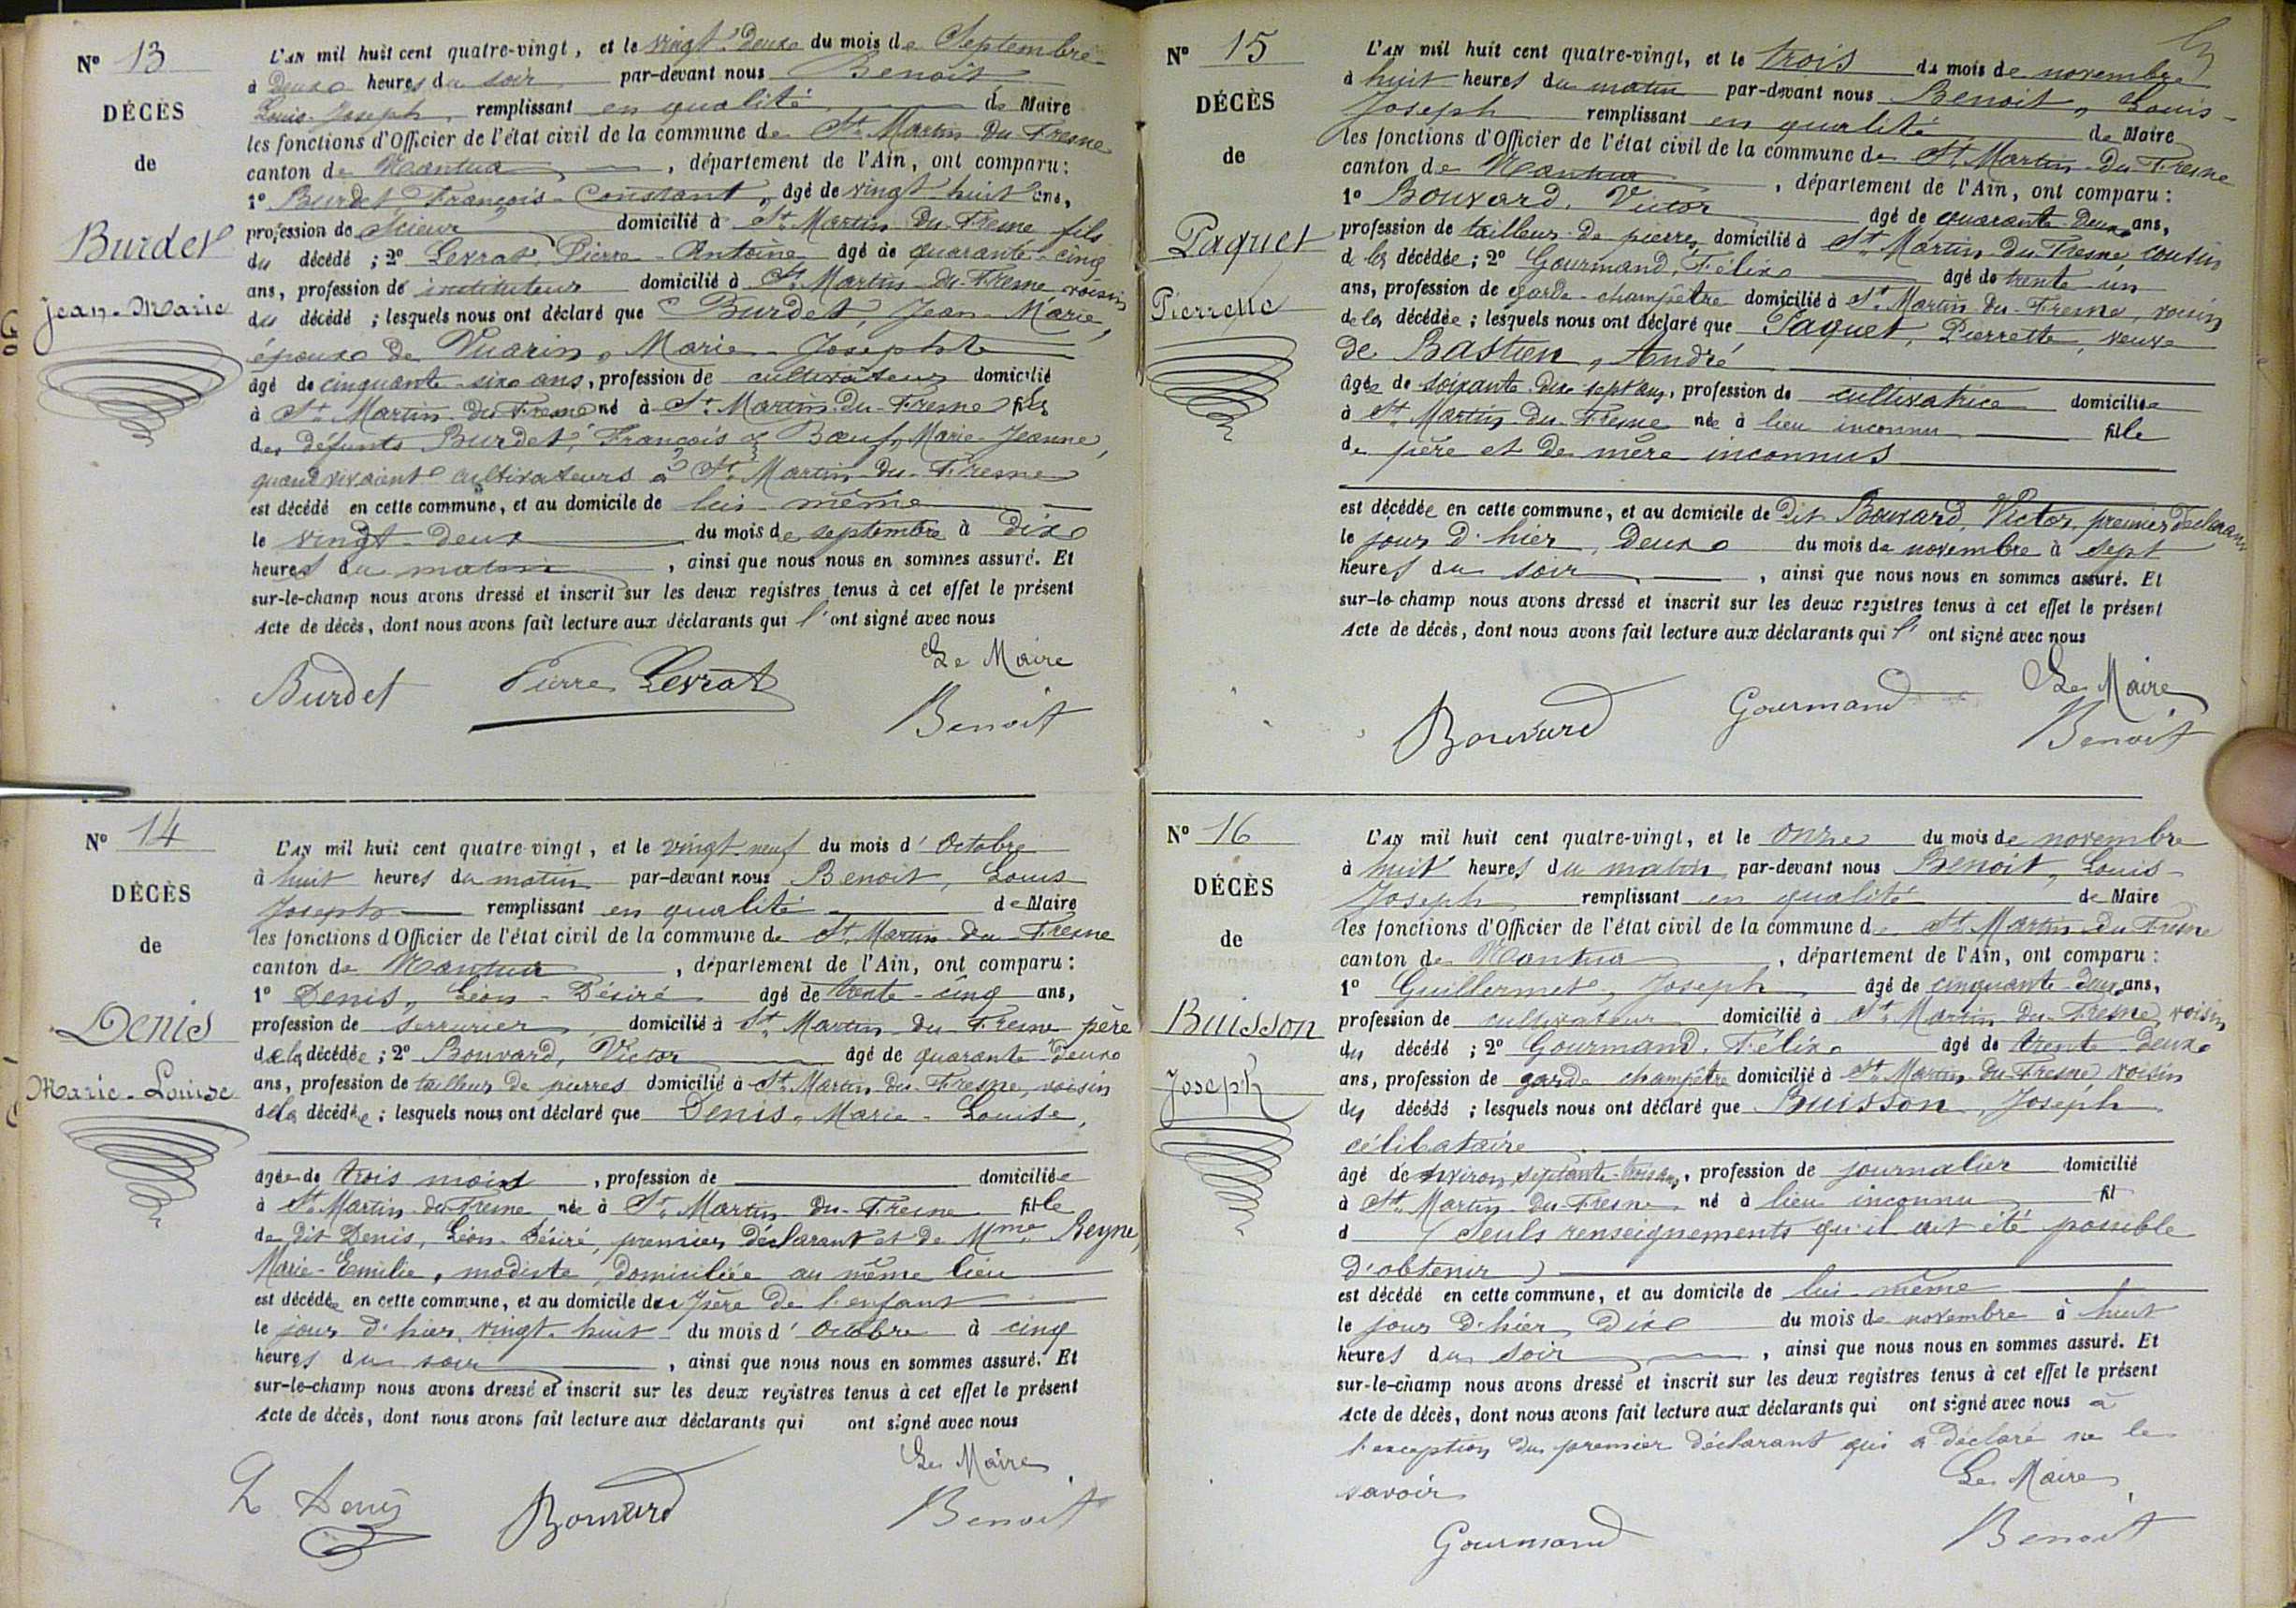 N° 13
DÉCÈS
de
Burdet
Jean-Marie
L'AN mil huit cent quatre-vingt, et le vingt-deux du mois de Septembre
à Deux heures du soir par-devant nous Benoit
Louis-Joseph, remplissant en qualité de Maire
les fonctions d'Officier de l'état civil de la commune de St Martin-du-Fresne
canton de Nantua, département de l'Ain, ont comparu :
1° Burdet François-Constant, âgé de vingt-huit ans,
profession de Scieur domicilié à St Martin-du-Fresne fils
du décédé ; 2° Levrat, Pierre-Antoine âgé de quarante-cinq
ans, profession de instituteur domicilié à St Martin-du-Fresne voisin
du décédé ; lesquels nous ont déclaré que Burdet, Jean-Marie,
époux de Vuarin, Marie-Josephte
âgé de cinquante-six ans, profession de cultivateur domicilié
à St Martin-du-Fresne né à St Martin-du-Fresne fils
des défunts Burdet, François & Bœuf, Marie-Jeanne,
quand vivaient cultivateurs à St Martin-du-Fresne
est décédé en cette commune, et au domicile de lui-même
le vingt-deux du mois de septembre à dix
heures du matin, ainsi que nous nous en sommes assuré. Et
sur-le-champ nous avons dressé et inscrit sur les deux registres tenus à cet effet le présent
Acte de décès, dont nous avons fait lecture aux déclarants qui l'ont signé avec nous
Le Maire
Burdet Pierre Levrat Benoit
N° 14
DÉCÈS
de
Denis
Marie-Louise
L'AN mil huit cent quatre-vingt, et le vingt-neuf du mois d'Octobre
à huit heures du matin par-devant nous Benoit, Louis
Joseph remplissant en qualité de Maire
les fonctions d'Officier de l'état civil de la commune de St Martin-du-Fresne
canton de Nantua, département de l'Ain, ont comparu :
1° Denis, Léon-Désiré âgé de trente-cinq ans,
profession de serrurier domicilié à St Martin-du-Fresne père
de la décédée ; 2° Bouvard, Victor âgé de quarante-deux
ans, profession de tailleur de pierres domicilié à St Martin-du-Fresne, voisin
de la décédée ; lesquels nous ont déclaré que Denis, Marie-Louise,
âgée de trois mois, profession de domiciliée
à St Martin-du-Fresne née à St Martin-du-Fresne fille
de dit Denis, Léon-Désiré, premier déclarant et de Mme Reyne,
Marie-Emilie, modiste, domiciliée au même lieu
est décédée en cette commune, et au domicile du père de l'enfant
le jour d'hier, vingt-huit du mois d'Octobre à cinq
heures du soir, ainsi que nous nous en sommes assuré. Et
sur-le-champ nous avons dressé et inscrit sur les deux registres tenus à cet effet le présent
Acte de décès, dont nous avons fait lecture aux déclarants qui ont signé avec nous
Le Maire
L Denis Bouvard Benoit
N° 15
DÉCÈS
de
Paquet
Pierrette
L'AN mil huit cent quatre-vingt, et le trois du mois de novembre
à huit heures du matin par-devant nous Benoit, Louis-
Joseph remplissant en qualité de Maire
les fonctions d'Officier de l'état civil de la commune de St Martin-du-Fresne
canton de Nantua, département de l'Ain, ont comparu :
1° Bouvard, Victor âgé de quarante-deux ans,
profession de tailleur de pierres, domicilié à St Martin-du-Fresne, cousin
de la décédée ; 2° Gourmand, Félix âgé de trente-un
ans, profession de garde-champêtre domicilié à St Martin-du-Fresne, voisin
de la décédée ; lesquels nous ont déclaré que Paquet, Pierrette, veuve
de Bastien, André
âgée de soixante-dix-sept ans, profession de cultivatrice domiciliée
à St Martin-du-Fresne née à lieu inconnu fille
de père et de mère inconnus
est décédée en cette commune, et au domicile de dit Bouvard, Victor, premier déclarant
le jour d'hier, deux du mois de novembre à sept
heures du soir, ainsi que nous nous en sommes assuré. Et
sur-le-champ nous avons dressé et inscrit sur les deux registres tenus à cet effet le présent
Acte de décès, dont nous avons fait lecture aux déclarants qui l'ont signé avec nous
Le Maire
Bouvard Gourmand Benoit
N° 16
DÉCÈS
de
Buisson
Joseph
L'AN mil huit cent quatre-vingt, et le onze du mois de novembre
à huit heures du matin par-devant nous Benoit, Louis-
Joseph remplissant en qualité de Maire
les fonctions d'Officier de l'état civil de la commune de St Martin-du-Fresne
canton de Nantua, département de l'Ain, ont comparu :
1° Guillermet, Joseph âgé de cinquante-deux ans,
profession de cultivateur domicilié à St Martin-du-Fresne, voisin
du décédé ; 2° Gourmand, Félix âgé de trente-deux
ans, profession de garde champêtre domicilié à St Martin-du-Fresne voisin
du décédé ; lesquels nous ont déclaré que Buisson, Joseph
célibataire
âgé de environ septante-trois ans, profession de journalier domicilié
à St Martin-du-Fresne né à lieu inconnu fil
d (Seuls renseignements qu'il ait été possible
d'obtenir)
est décédé en cette commune, et au domicile de lui-même
le jour d'hier, dix du mois de novembre à huit
heures du soir, ainsi que nous nous en sommes assuré. Et
sur-le-champ nous avons dressé et inscrit sur les deux registres tenus à cet effet le présent
Acte de décès, dont nous avons fait lecture aux déclarants qui ont signé avec nous à
l'exception du premier déclarant qui a déclaré ne le
savoir
Le Maire
Gourmand Benoit